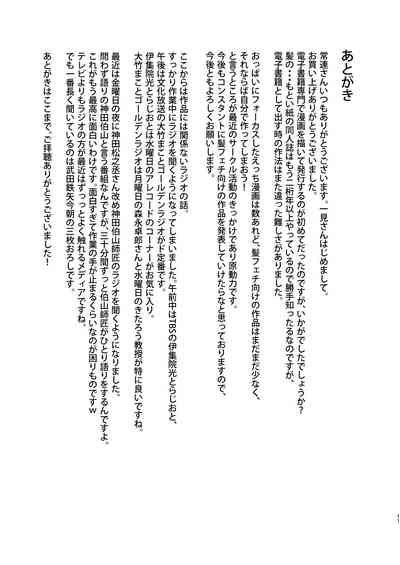 あとがき
常連さんいつもありがとうございます。一見さんはじめまして、
お買い上げありがとうございました。
電子書籍専門で漫画を描いて発行するのが初めてだったのですが、いかがでしたでしょうか?
髪の・・・もとい紙の同人誌はもう二桁年以上やっているので勝手知ったるなのですが、
電子書籍として出す時の作法はまた違った難しさがありました。
おっぱいにフォーカスしたえっち漫画は数あれど、髪フェチ向けの作品はまだまだ少なく、
それならば自分で作ってしまおう!
と言うところが最近のサークル活動のきっかけであり原動力です。
今後もコンスタントに髪フェチ向けの作品を発表していけたらなと思っておりますので、
今後ともよろしくお願いします。
ここからは作品には関係ないラジオの話。
すっかり作業中にラジオを聞くようになってしまいました。午前中はTBSの伊集院光とらじおと、
午後は文化放送の大竹まことゴールデンラジオが定番です。
伊集院光とらじおとは水曜日のアレコードのコーナーがお気に入り。
大竹まことゴールデンラジオは月曜日の森永卓郎さんと水曜日のきたろう教授が特に良いですね。
最近は金曜日の夜に神田松之丞さん改め神田伯山師匠のラジオを聞くようになりました。
問わず語りの神田伯山と言う番組なんですが、三十分間ずっと伯山師匠がひとり語りをするんですよ。
これがもう最高に面白いわけです。面白すぎて作業の手が止まるくらいなのが困りものですw
テレビよりもラジオの方が最近はずっっとよく触れるメディアですね。
でも一番長く聞いているのは武田鉄矢今朝の三枚おろしです。
あとがきはここまで、ご拝聴ありがとうございました!